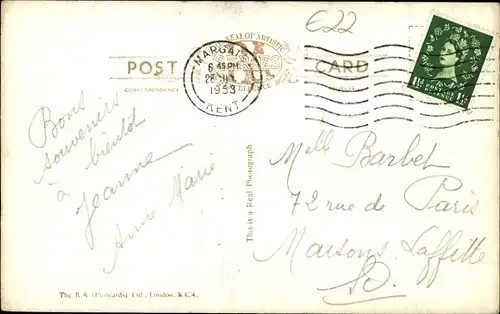 €22
SEAL OF ARTISTIC
EXCELLENCE
POST CARD
CORRESPONDENCE
MARGATE
6 45 PM
1953
KENT
POSTAGE REVENUE
1½D 1½D
Bons
souvenirs
à bientôt
Jeanne
Anne Marie
This is a Real Photograph
Melle Barbet
72 rue de Paris
Maisons-Laffitte
The R.A. (Postcards) Ltd., London, E.C.4.